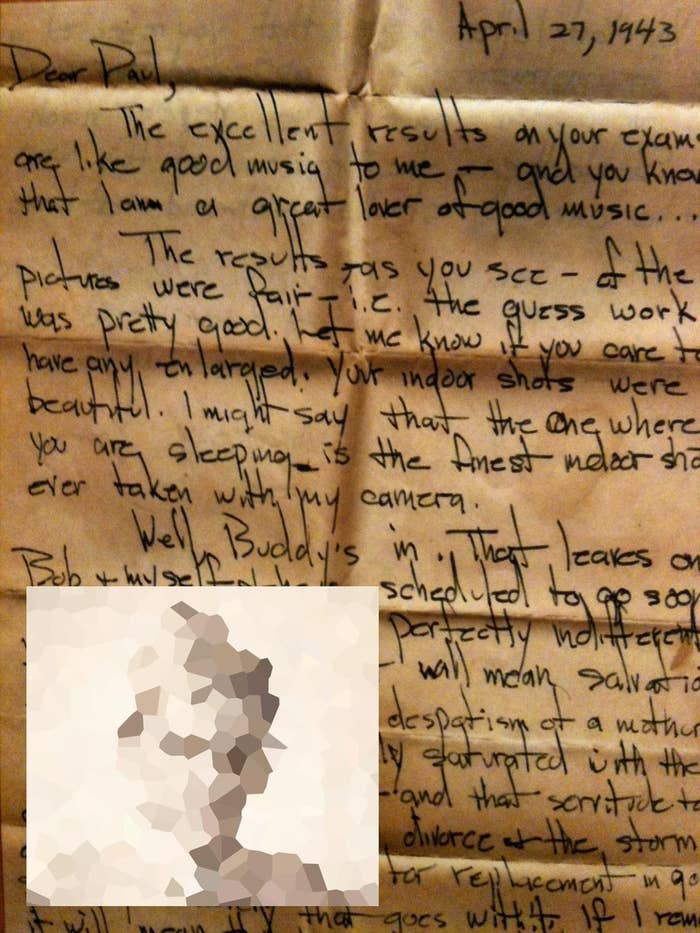 April 27, 1943
Dear Paul,
The excellent results on your exam
are like good music to me — and you know
that I am a great lover of good music...
The results — as you see — of the
pictures were fair — i.e. the guess work
was pretty good. Let me know if you care to
have any enlarged. Your indoor shots were
beautiful. I might say that the one where
you are sleeping is the finest indoor sho
ever taken with my camera.
Well, Buddy's in. That leaves on
Bob + myself scheduled to go soon
perfectly indifferent
will mean salvatio
despotism of a mother
saturated with the
and that servitude to
divorce + the storm
for replacement in
it will mean that goes with it. If I